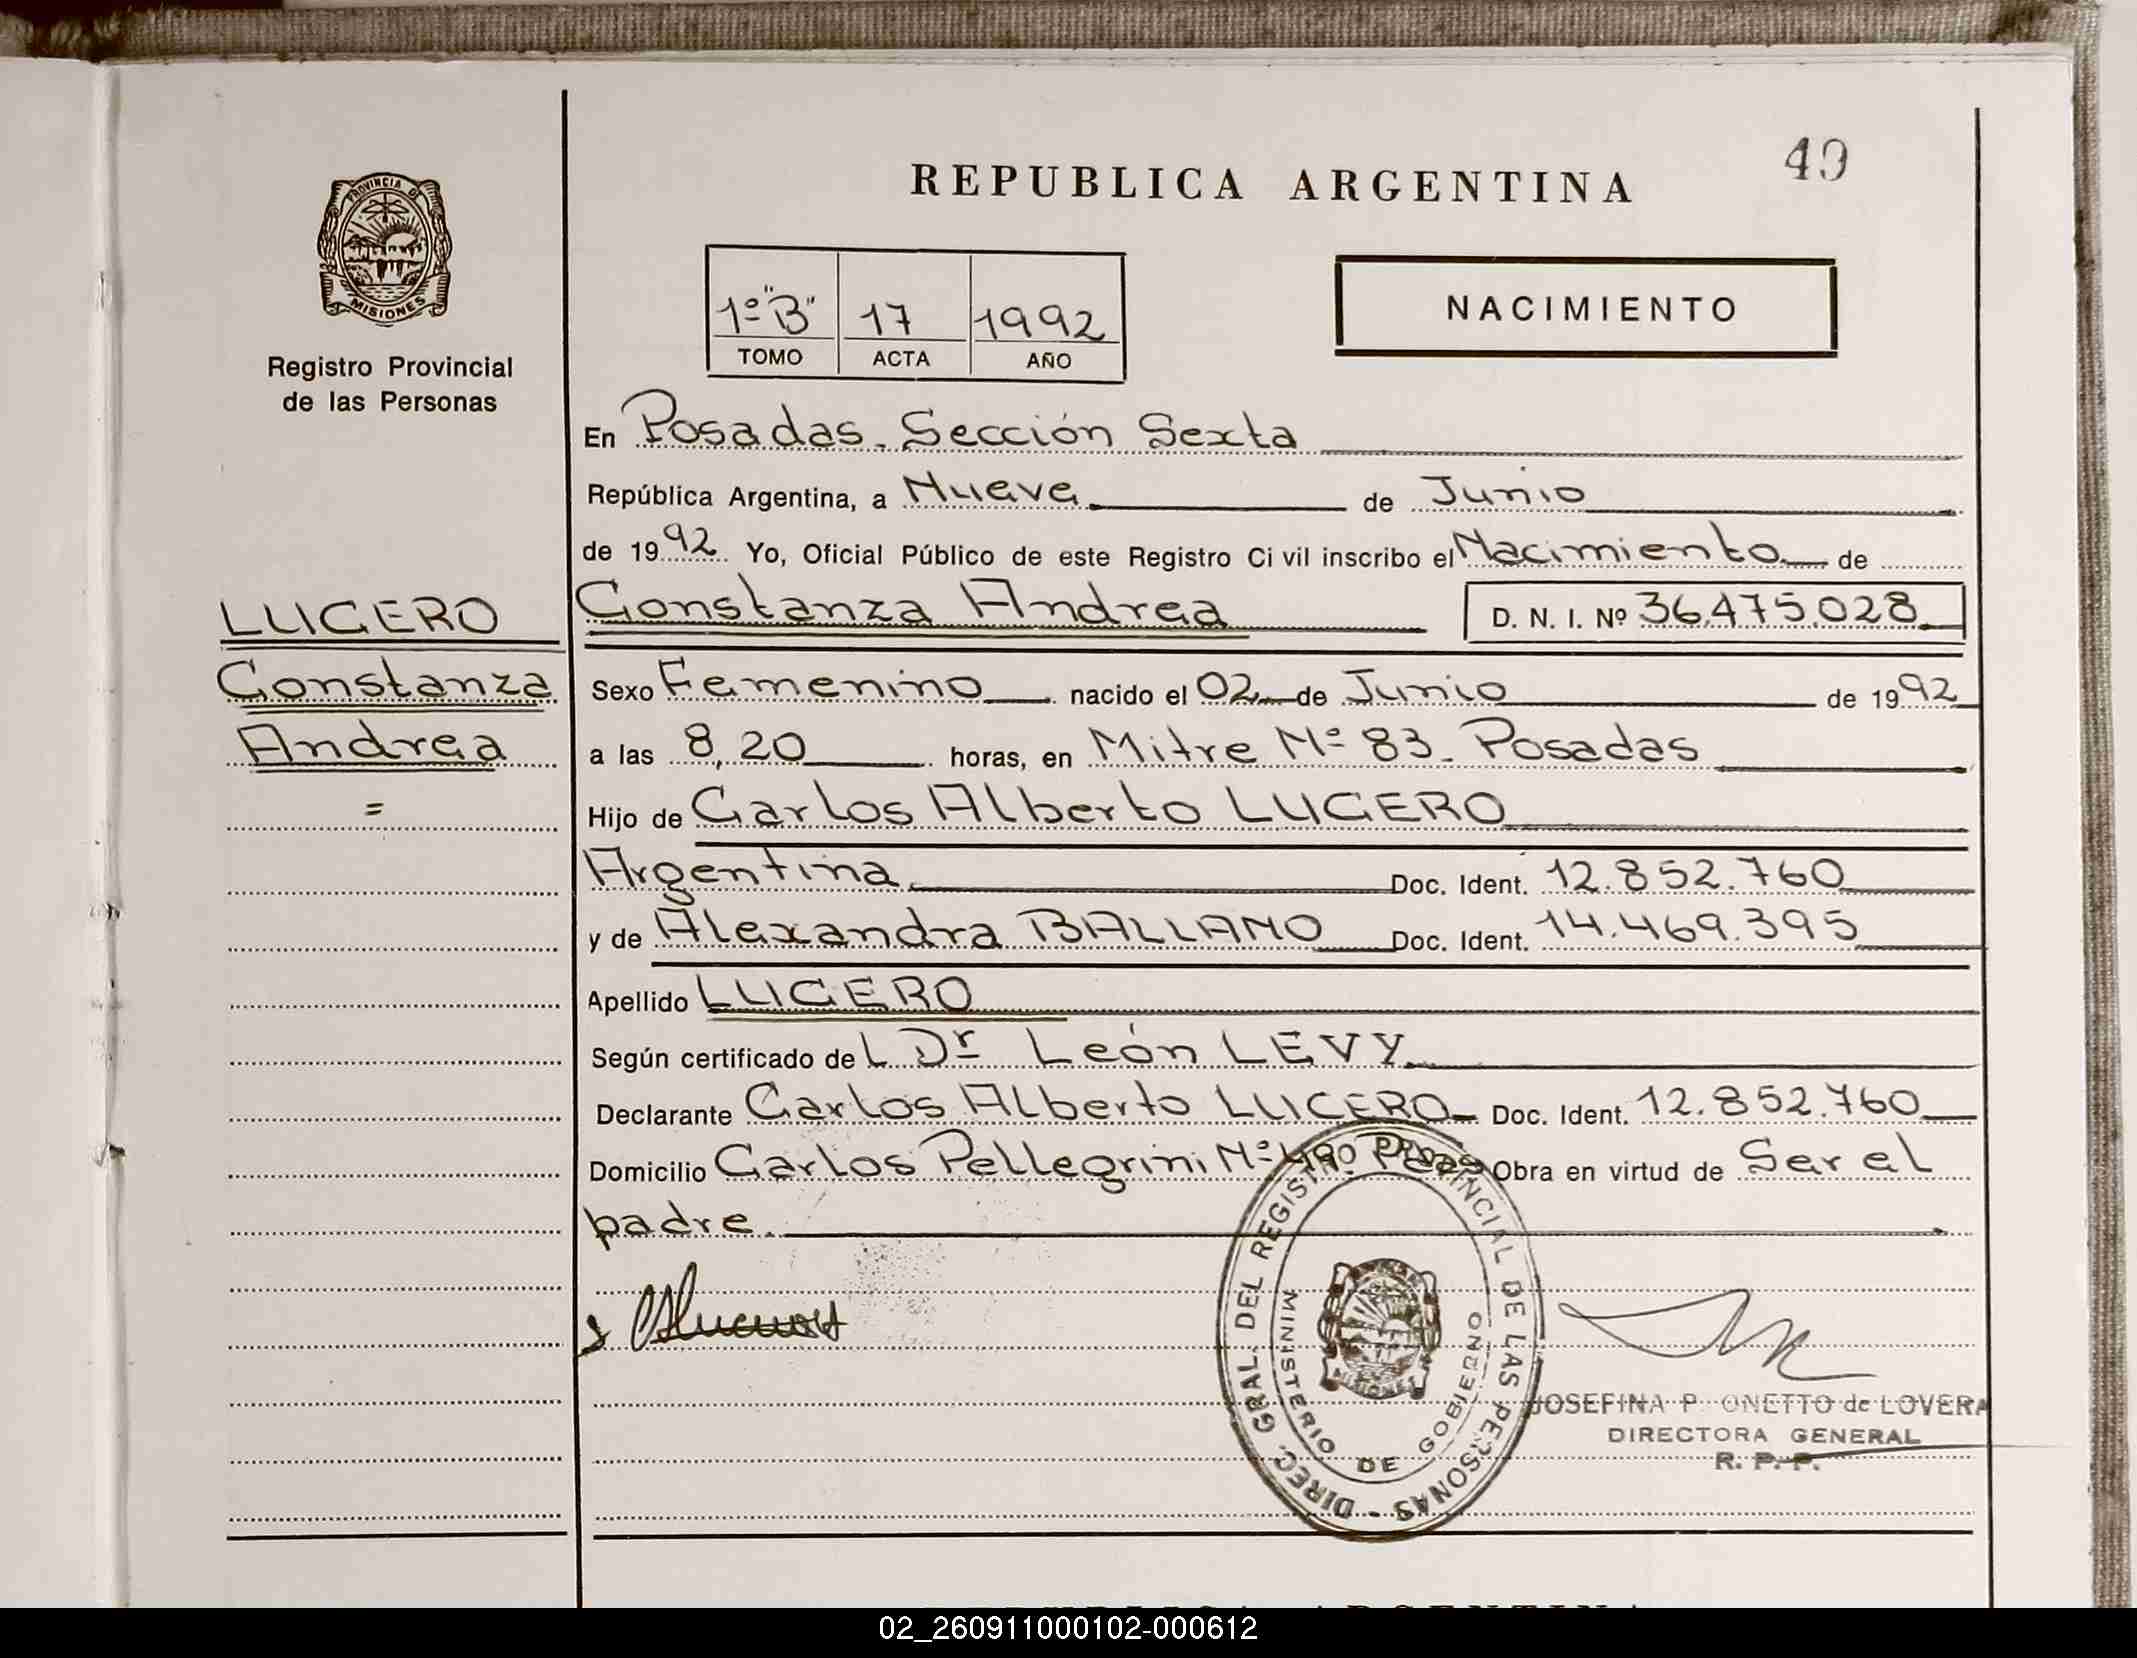 49
REPUBLICA ARGENTINA
PROVINCIA DE
MISIONES
Registro Provincial
de las Personas
1º "B" 17 1992
TOMO ACTA AÑO
NACIMIENTO
En Posadas. Sección Sexta
República Argentina, a Nueve de Junio
de 1992 Yo, Oficial Público de este Registro Civil inscribo el Nacimiento de
LUCERO
Constanza
Andrea
=
Constanza Andrea D. N. I. Nº 36.475.028
Sexo Femenino nacido el 02 de Junio de 1992
a las 8,20 horas, en Mitre Nº 83. Posadas
Hijo de Carlos Alberto LUCERO
Argentina Doc. Ident. 12.852.760
y de Alexandra BALLANO Doc. Ident. 14.469.395
Apellido LUCERO
Según certificado de L Dr León LEVY
Declarante Carlos Alberto LUCERO Doc. Ident. 12.852.760
Domicilio Carlos Pellegrini Nº Obra en virtud de Ser el
padre.
DIREC. GRAL. DEL REGISTRO PROVINCIAL DE LAS PERSONAS -
MINISTERIO DE GOBIERNO
MISIONES
JOSEFINA P. ONETTO de LOVERA
DIRECTORA GENERAL
R. P. P.
REPUBLICA ARGENTINA
02_260911000102-000612